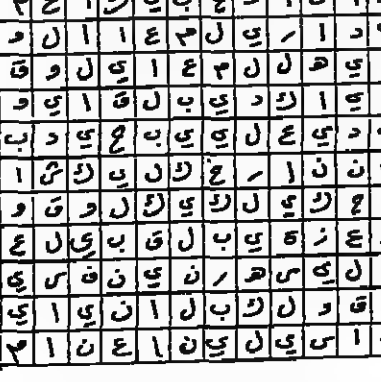 د ا ر ي ل م ع ا ا ل و
ي ه ل ل م ع ا ي ل و ق
ي ا ك د ي ب ل ق ا ي و
د ي ع ل ي ي ب ج ي د ب
ن ن ا ر خ ك ل ي ك ش ا
ج ك ي ل ك ي ك ل و ق و
ع ز ة ي ب ل ق ب ي ل ع
ل ي س ه ر ن ي ن ف س ي
ق د ل ك ب ل ا ن ي ا ي
ا س ي ل ي ن ا ع ن ا م